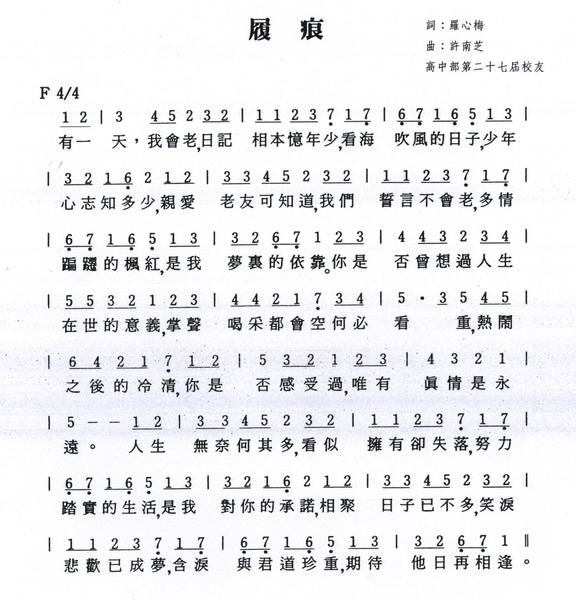 履痕
詞：羅心梅
曲：許南芝
高中部第二十七屆校友
F 4/4
1 2 | 3 4 5 2 3 2 | 1 1 2 3 7 1 7 | 6 7 1 6 5 1 3 |
有一 天，我會老,日記 相本憶年少,看海 吹風的日子,少年
| 3 2 1 6 2 1 2 | 3 3 4 5 2 3 2 | 1 1 2 3 7 1 7 |
心志知多少,親愛 老友可知道,我們 誓言不會老,多情
| 6 7 1 6 5 1 3 | 3 2 6 7 1 2 3 | 4 4 3 2 3 4 |
躡躚的楓紅,是我 夢裏的依靠。你是 否曾想過人生
| 5 5 3 2 1 2 3 | 4 4 2 1 7 3 4 | 5 · 3 5 4 5 |
在世的意義,掌聲 喝采都會空何必 看 重,熱鬧
| 6 4 2 1 7 1 2 | 5 5 3 1 2 3 | 4 3 2 1 |
之後的冷清,你是 否感受過,唯有 眞情是永
| 5 - - 1 2 | 3 3 4 5 2 3 2 | 1 1 2 3 7 1 7 |
遠。 人生 無奈何其多,看似 擁有卻失落,努力
| 6 7 1 6 5 1 3 | 3 2 1 6 2 1 2 | 3 3 4 5 2 3 2 |
踏實的生活,是我 對你的承諾,相聚 日子已不多,笑淚
| 1 1 2 3 7 1 7 | 6 7 1 6 5 1 3 | 3 2 6 7 1 ‖
悲歡已成夢,含淚 與君道珍重,期待 他日再相逢。